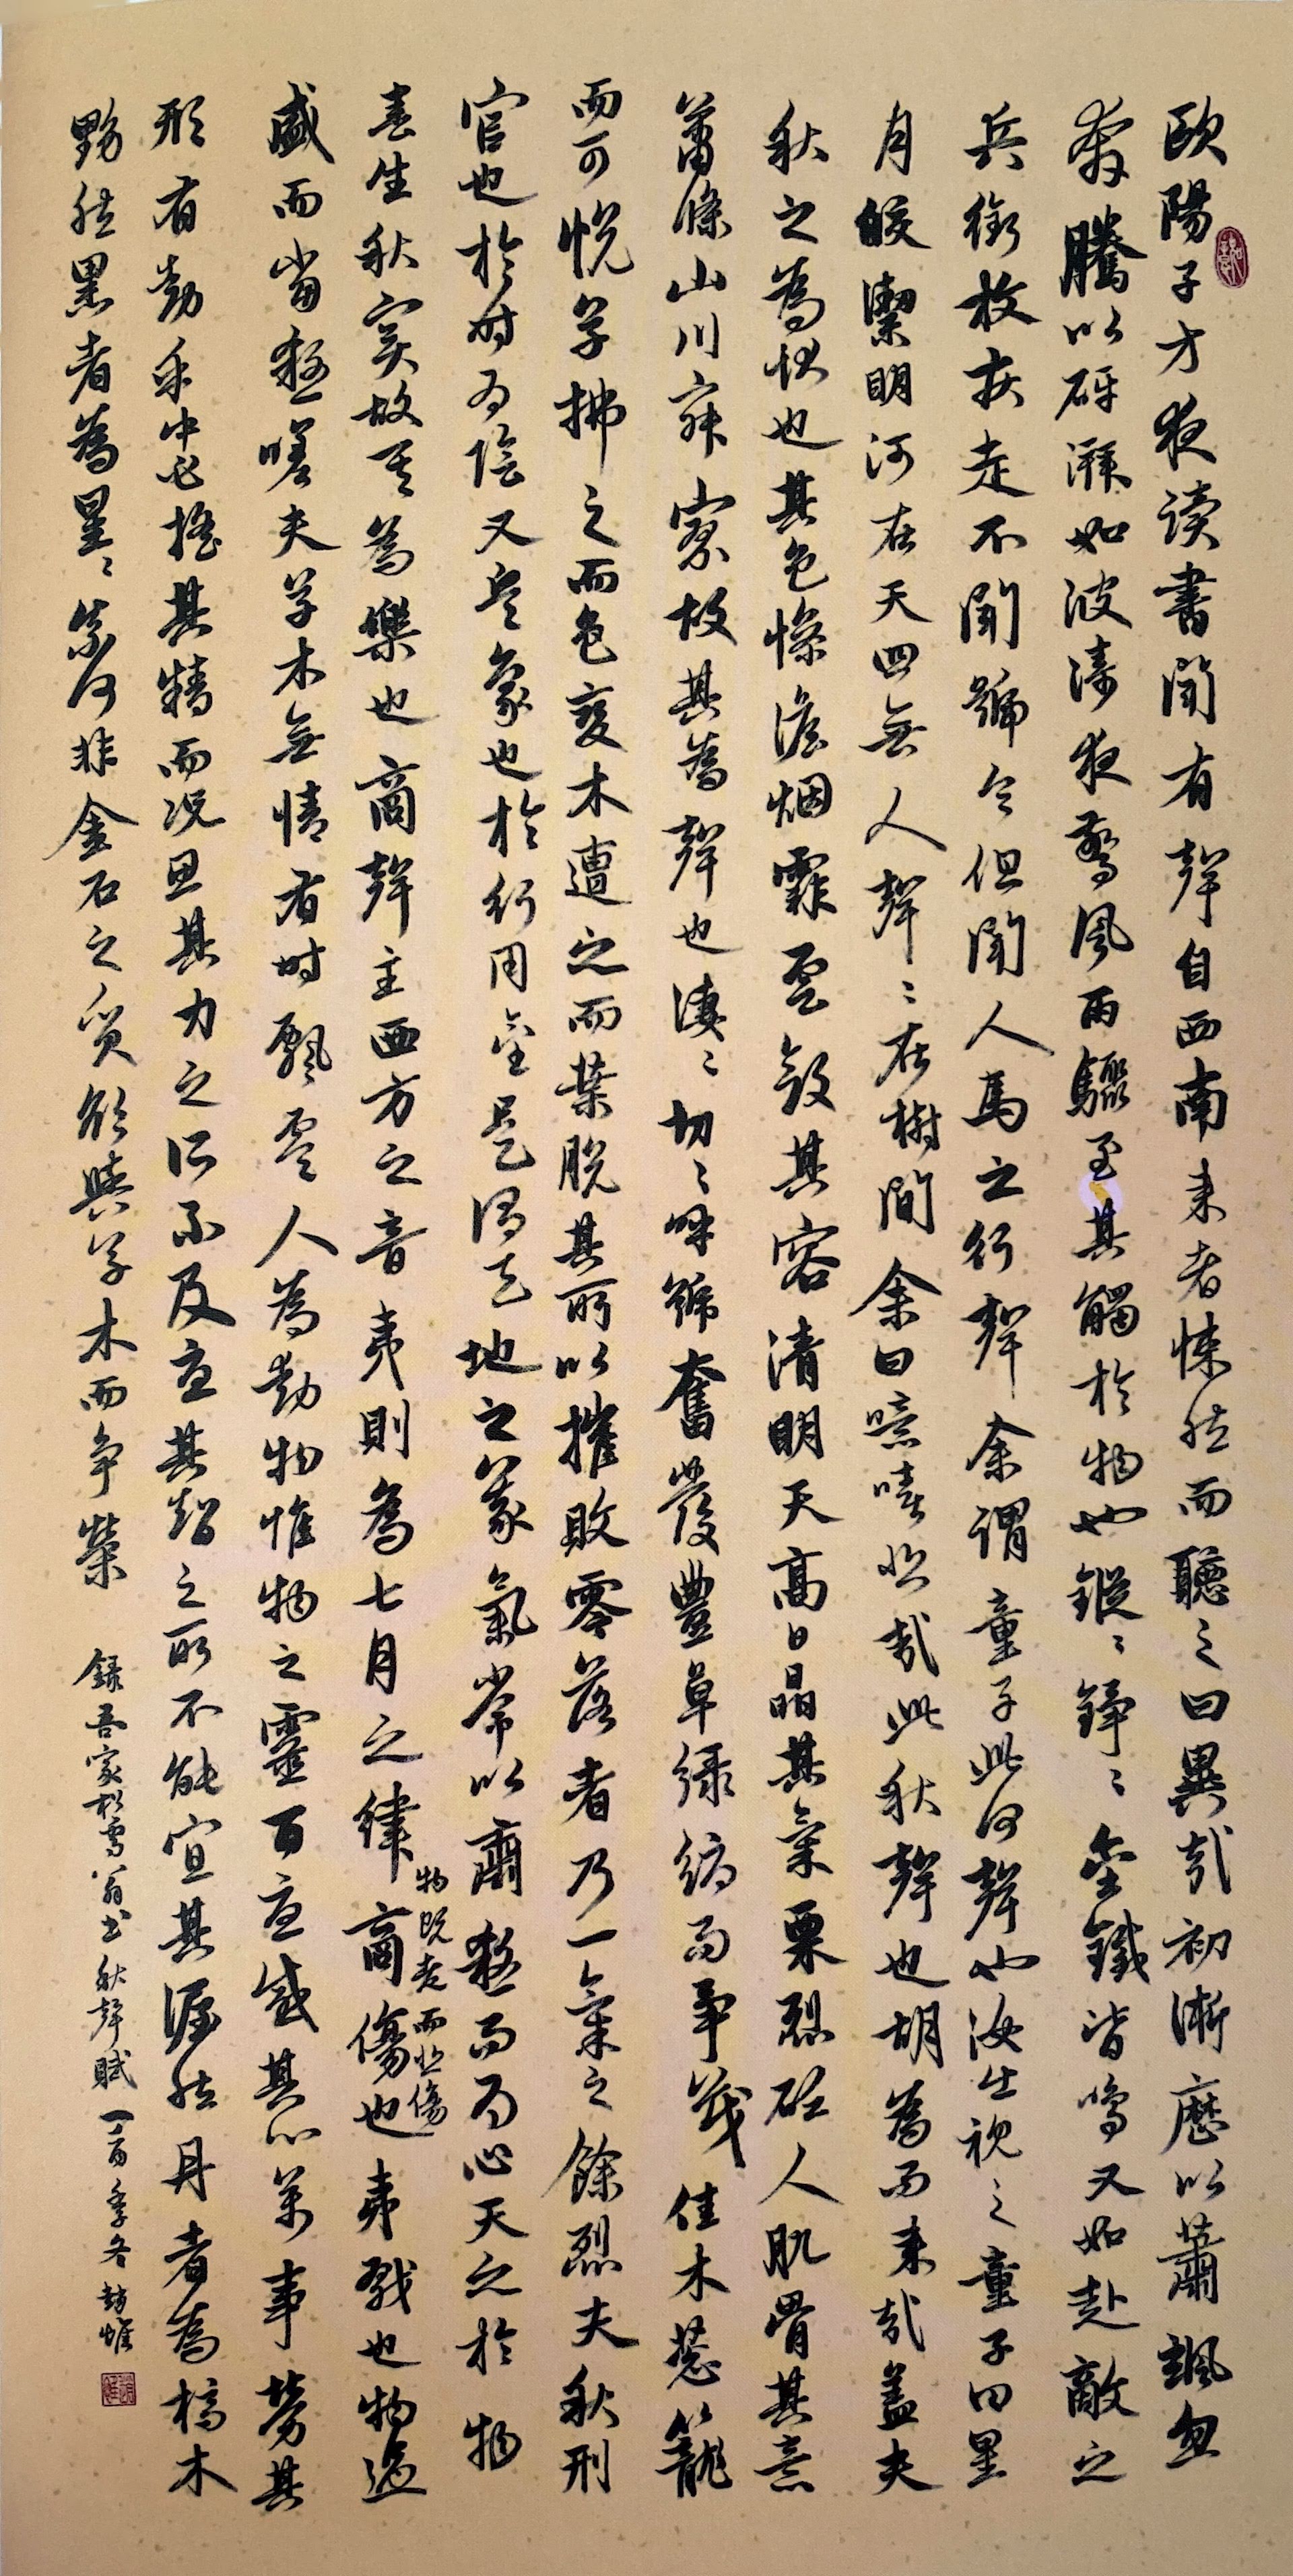 歐陽子方夜读書聞有聲自西南来者悚然而聽之曰異哉初淅瀝以蕭颯忽
奔騰以砰湃如波濤夜驚風雨驟至其觸於物也鏦〻錚〻金鐵皆鳴又如赴敵之
兵銜枚疾走不聞號令但聞人馬之行聲余謂童子此何聲也汝出视之童子曰星
月皎潔明河在天四無人聲〻在樹間余曰噫嘻悲哉此秋聲也胡為而来哉蓋夫
秋之為狀也其色慘澹烟霏雲斂其容清明天高日晶其氣栗烈砭人肌骨其意
蕭條山川寂寥故其為聲也淒〻切〻呼號奮發豐草绿縟而爭茂佳木蔥籠
而可悅草拂之而色變木遭之而葉脱其所以摧敗零落者乃一氣之餘烈夫秋刑
官也於时为陰又兵象也於行用金是谓天地之義氣常以肅殺而为心天之於物
春生秋实故其為樂也商聲主西方之音夷則為七月之律商傷也夷戮也物過
物既老而悲傷
盛而當殺嗟夫草木無情有時飄零人為動物惟物之靈百憂感其心萬事勞其
形有動乎中必搖其精而况思其力之所不及憂其智之所不能宜其渥然丹者為槁木
黟然黑者為星〻奈何非金石之质欲與草木而争榮
錄吾家松雪翁书秋聲賦一首季冬趙惟